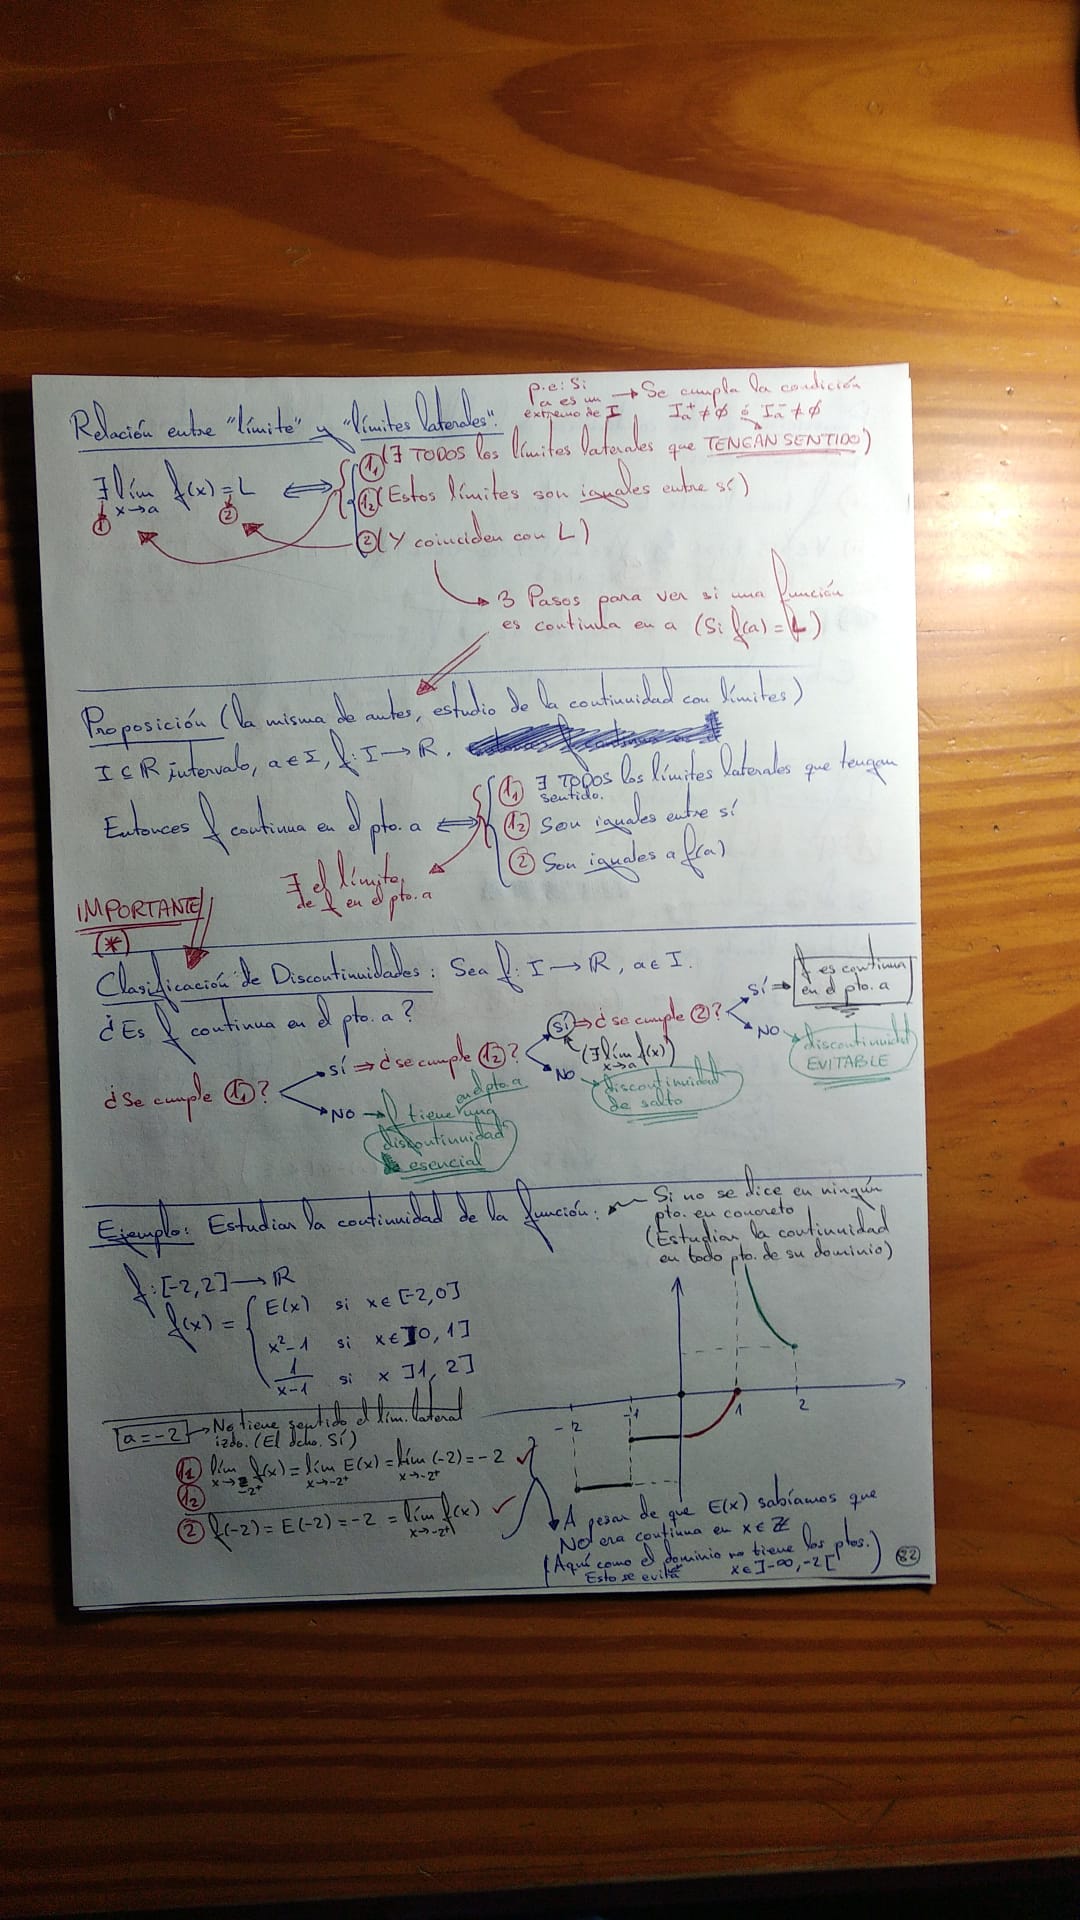 p.e: Si
a es un → Se cumpla la condición
extremo de I  Iₐ⁺ ≠ ∅ ó Iₐ⁻ ≠ ∅
Relación entre "límite" y "límites laterales":
1₁ (∃ TODOS los límites laterales que TENGAN SENTIDO)
∃ lím f(x) = L ⟺ 1₂ (Estos límites son iguales entre sí)
x→a
① ②
② (Y coinciden con L)
→ 3 Pasos para ver si una función
es continua en a (Si f(a) = L)
Proposición (la misma de antes, estudio de la continuidad con límites)
I ⊆ ℝ intervalo, a ∈ I, f: I → ℝ.
1₁ ∃ TODOS los límites laterales que tengan
sentido.
Entonces f continua en el pto. a ⟺ 1₂ Son iguales entre sí
② Son iguales a f(a)
∃ el límite
de f en el pto. a
IMPORTANTE
(*)
Clasificación de Discontinuidades: Sea f: I → ℝ, a ∈ I.
¿Es f continua en el pto. a?
¿Se cumple 1₁?
SÍ ⇒ ¿se cumple 1₂?
SÍ ⇒ ¿se cumple ②?
(∃ lím f(x))
x→a
SÍ ⇒ f es continua
en el pto. a
NO → discontinuidad
EVITABLE
NO → discontinuidad
de salto
en el pto. a
NO → f tiene una
discontinuidad
esencial
Ejemplo: Estudiar la continuidad de la función:
Si no se dice en ningún
pto. en concreto
(Estudiar la continuidad
en todo pto. de su dominio)
f: [-2,2] → ℝ
f(x) = { E(x) si x ∈ [-2,0]
x²-1 si x ∈ ]0, 1]
1/(x-1) si x ]1, 2]
-2 -1 1 2
a = -2 → No tiene sentido el lím. lateral
izdo. (El dcho. SÍ)
1₁ lím f(x) = lím E(x) = lím (-2) = -2 ✓
x→-2⁺ x→-2⁺ x→-2⁺
1₂
② f(-2) = E(-2) = -2 = lím f(x) ✓
x→-2⁺
A pesar de que E(x) sabíamos que
NO era continua en x ∈ ℤ
(Aquí como el dominio no tiene los ptos.)
Esto se evita x ∈ ]-∞, -2[
82